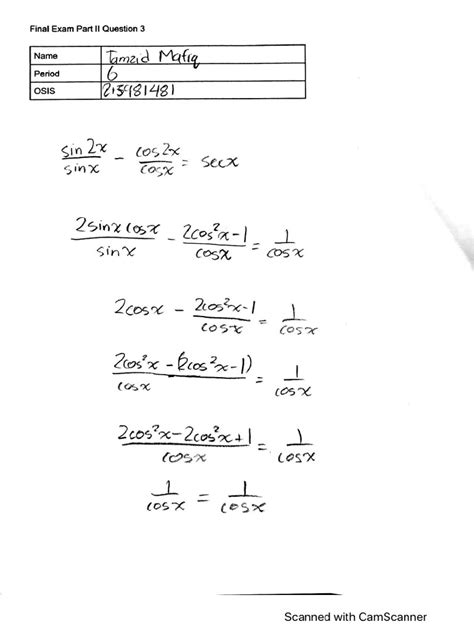 Final Exam Part II Question 3
Name Tamzid Mafiq
Period 6
OSIS
sin 2x / sinx - cos2x / cosx = secx
2sinx cosx / sinx - 2cos²x-1 / cosx = 1 / cosx
2cosx - 2cos²x-1 / cosx = 1 / cosx
2cos²x - (2cos²x-1) / cosx = 1 / cosx
2cos²x-2cos²x+1 / cosx = 1 / cosx
1 / cosx = 1 / cosx
Scanned with CamScanner